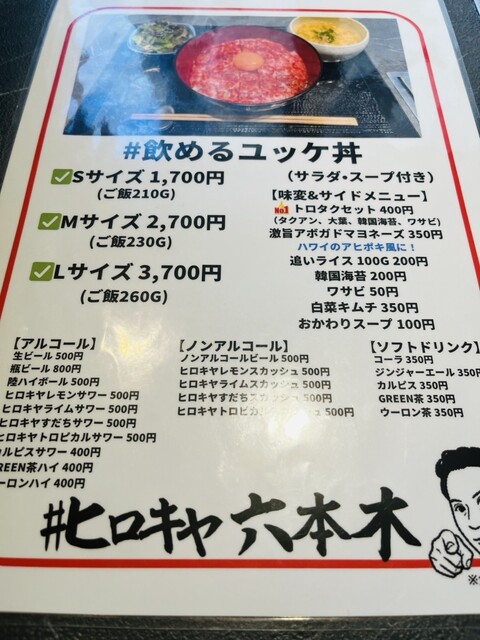 #飲めるユッケ丼
Sサイズ 1,700円
(ご飯210G)
Mサイズ 2,700円
(ご飯230G)
Lサイズ 3,700円
(ご飯260G)
(サラダ・スープ付き)
【味変&サイドメニュー】
No1 トロタクセット 400円
(タクアン、大葉、韓国海苔、ワサビ)
激旨アボガドマヨネーズ 350円
ハワイのアヒポキ風に!
追いライス 100G 200円
韓国海苔 200円
ワサビ 50円
白菜キムチ 350円
おかわりスープ 100円
【アルコール】
生ビール 500円
瓶ビール 800円
陸ハイボール 500円
ヒロキヤレモンサワー 500円
ヒロキヤライムサワー 500円
ヒロキヤすだちサワー 500円
ヒロキヤトロピカルサワー 500円
カルピスサワー 400円
GREEN茶ハイ 400円
ウーロンハイ 400円
【ノンアルコール】
ノンアルコールビール 500円
ヒロキヤレモンスカッシュ 500円
ヒロキヤライムスカッシュ 500円
ヒロキヤすだちスカッシュ 500円
ヒロキヤトロピカルスカッシュ 500円
【ソフトドリンク】
コーラ 350円
ジンジャーエール 350円
カルピス 350円
GREEN茶 350円
ウーロン茶 350円
#ヒロキヤ 六本木